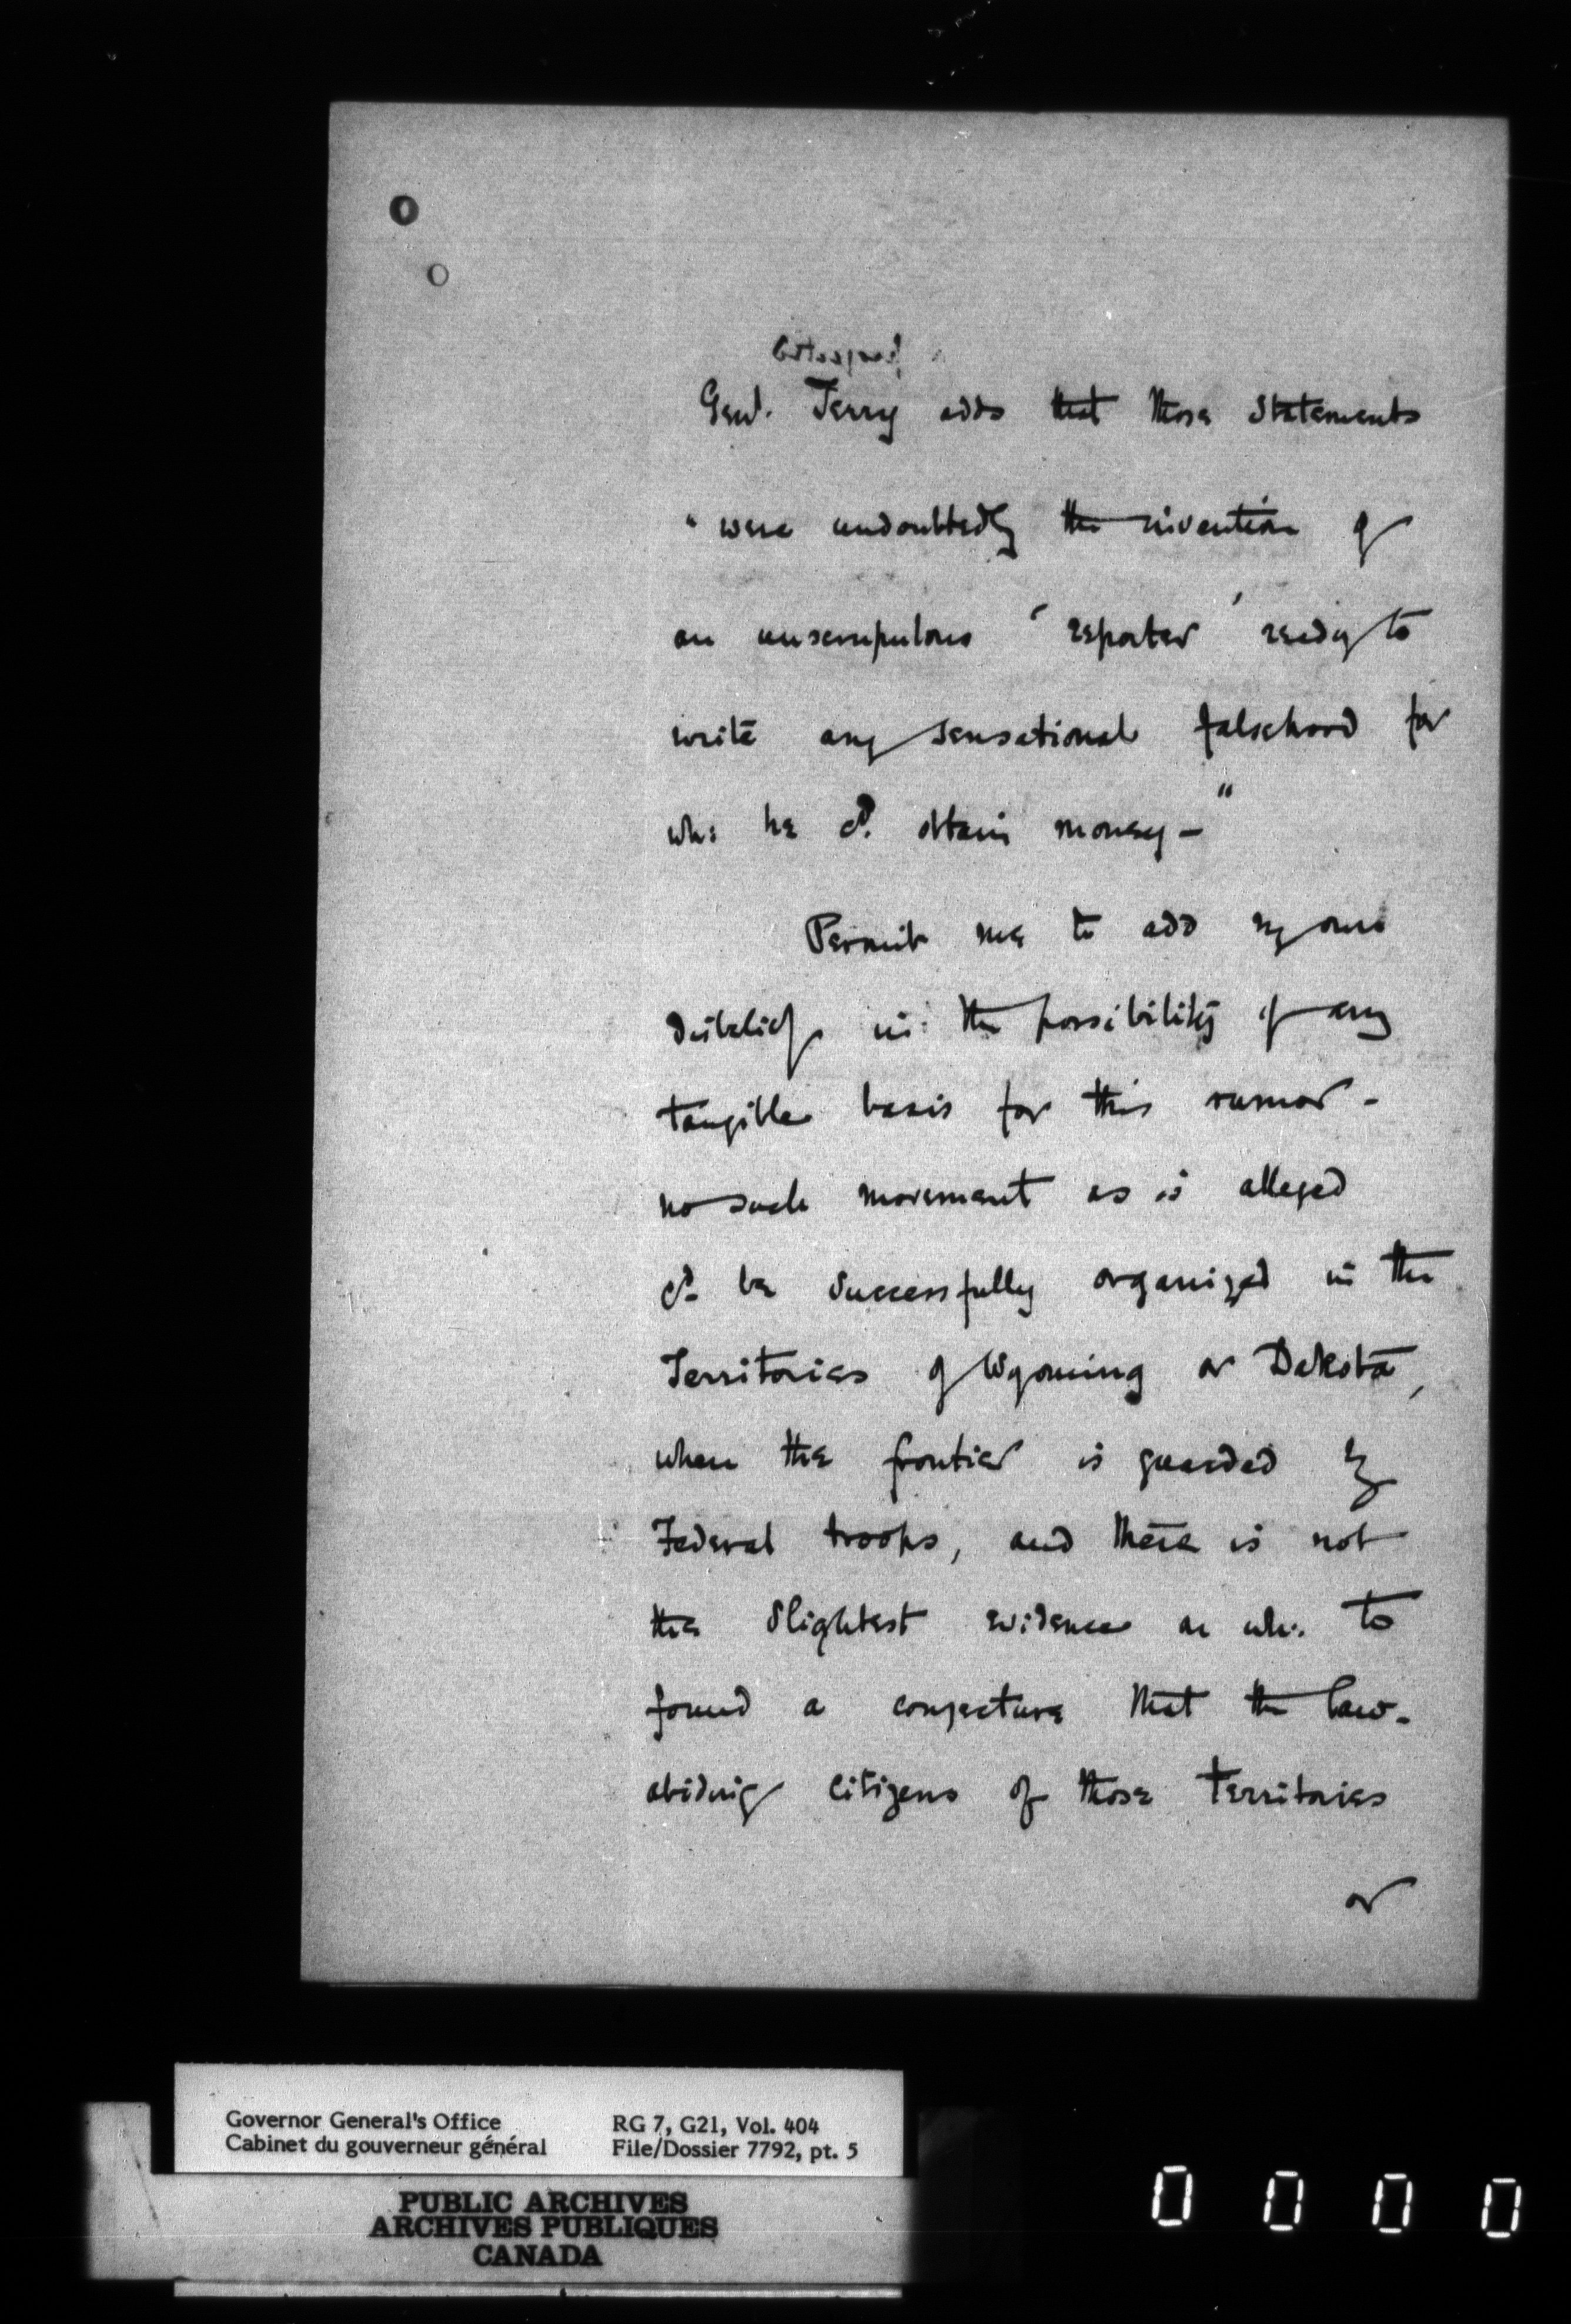 Genl. Terry adds that those statements
" were undoubtedly the invention of
an unscrupulous ' reporter ' ready to
write any sensational falsehood for
wh: he cd. obtain money — "
Permit me to add my own
disbelief in the possibility of any
tangible basis for this rumor -
no such movement as is alleged
cd. be successfully organized in the
Territories of Wyoming or Dakota,
when the frontier is guarded by
Federal troops, and there is not
the slightest evidence on wh: to
found a conjecture that the law-
abiding citizens of those territories
or
Governor General's Office
Cabinet du gouverneur général
RG 7, G21, Vol. 404
File/Dossier 7792, pt. 5
PUBLIC ARCHIVES
ARCHIVES PUBLIQUES
CANADA
0 0 0 0